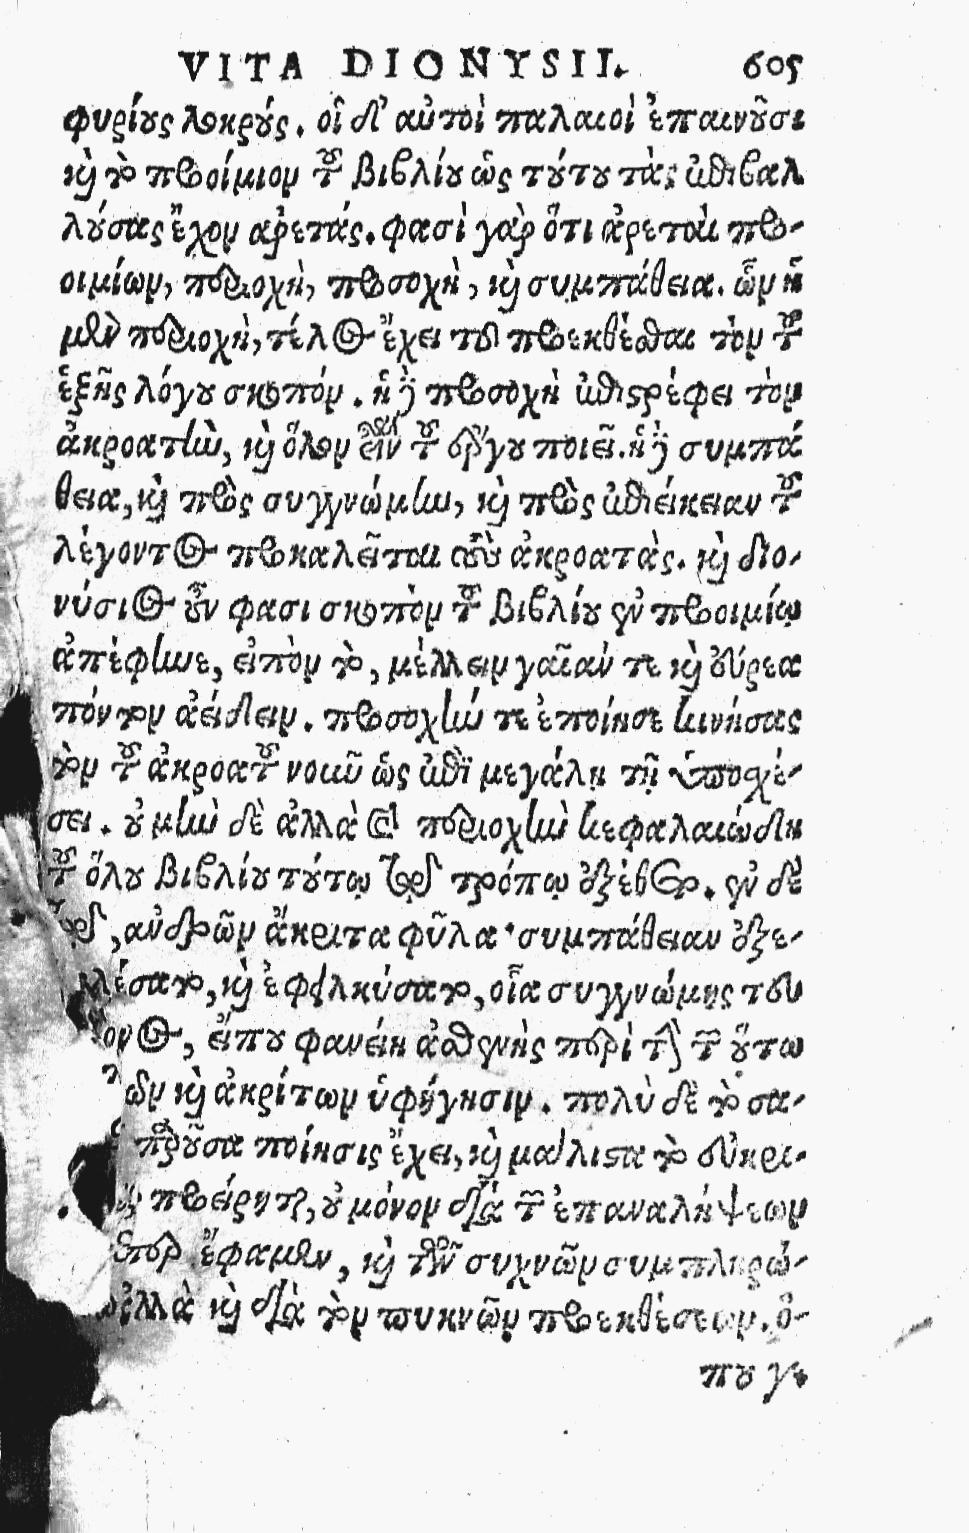 VITA DIONYSII. 605
φυρίους λοκρούς. οἱ δ' αὐτοὶ παλαιοὶ ἐπαινοῦσι
καὶ τὸ προοίμιον τοῦ βιβλίου ὡς τούτου τὰς ἐπιβαλ
λούσας ἔχον ἀρετάς. φασὶ γὰρ ὅτι ἀρεταὶ προ-
οιμίων, περιοχὴ, προσοχὴ, καὶ συμπάθεια. ὧν ἡ
μὲν περιοχὴ, τέλος ἔχει τὸ προεκθέσθαι τὸν τοῦ
ἑξῆς λόγου σκοπόν. ἡ δὲ προσοχὴ ἐπιστρέφει τὸν
ἀκροατὴν, καὶ ὅλον εἶναι τοῦ ἔργου ποιεῖ. ἡ δὲ συμπά
θεια, καὶ πρὸς συγγνώμην, καὶ πρὸς ἐπιείκειαν τοῦ
λέγοντος προκαλεῖται τοὺς ἀκροατὰς. καὶ διο-
νύσιος οὖν φασι σκοπὸν τοῦ βιβλίου ἐν προοιμίῳ
ἀπέφηνε, εἰπὸν τὸ, μέλλειν γαῖάν τε καὶ οὔρεα
πόντον ἀείδειν. προσοχὴν τε ἐποίησε κινήσας
τὸν τοῦ ἀκροατοῦ νοῦν ὡς ἐπὶ μεγάλῃ τῇ ὑποσχέ-
σει. οὐ μὴν δὲ ἀλλὰ καὶ περιοχὴν κεφαλαιώδη
τοῦ ὅλου βιβλίου τούτῳ τῷ τρόπῳ ἐξέθετο. ἐν δὲ
, ἀνδρῶν ἄκριτα φῦλα· συμπάθειαν ἐξε-
λέσατο, καὶ ἐφειλκύσατο, οἷα συγγνώμης
, εἴπου φανείη ἀσθενὴς περὶ τὴν τῶν οὕτω
καὶ ἀκρίτων ὑφήγησιν. πολὺ δὲ τὸ σα-
ποίησις ἔχει, καὶ μάλιστα τὸ εὐκρι-
προείρηται, οὐ μόνον διὰ τῶν ἐπαναλήψεων
ἔφαμεν, καὶ τῶν συχνῶν συμπληρώ-
ἀλλὰ καὶ διὰ τὸν πυκνῶν προεκθέσεων. ὁ-
που γ.